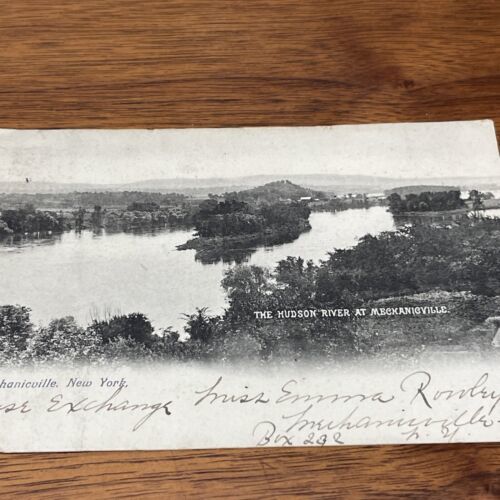 THE HUDSON RIVER AT MECHANICVILLE.
hanicville. New York,
se Exchange Miss Emma Rowley
Mechanicville
Box 292 N. Y.